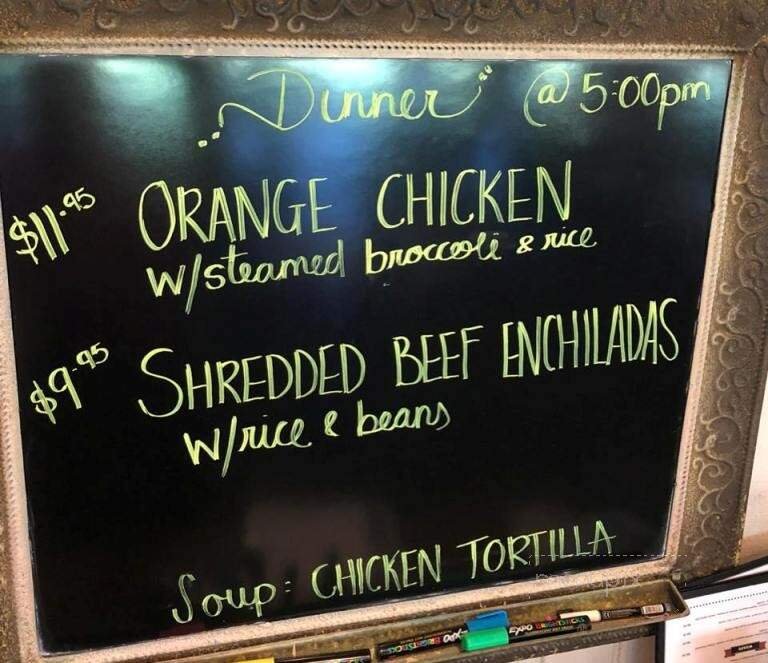 Dinner @ 5:00pm
$11.95 ORANGE CHICKEN
w/steamed broccoli & rice
$9.95 SHREDDED BEEF ENCHILADAS
w/rice & beans
Soup: CHICKEN TORTILLA
EXPO